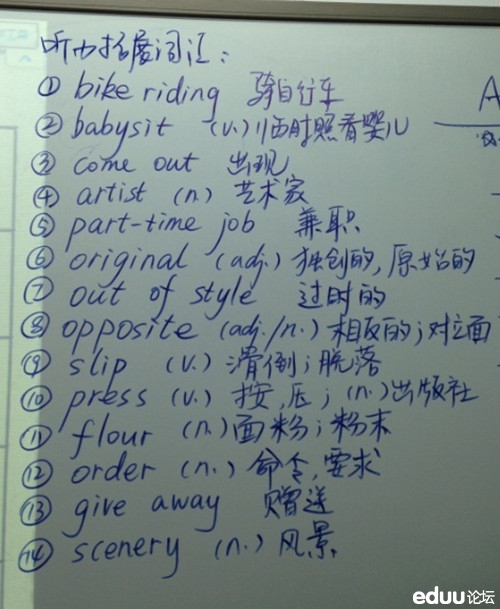 听力拓展词汇：
① bike riding 骑自行车
② babysit (v.) 临时照看婴儿
③ come out 出现
④ artist (n.) 艺术家
⑤ part-time job 兼职
⑥ original (adj.) 独创的，原始的
⑦ out of style 过时的
⑧ opposite (adj./n.) 相反的；对立面
⑨ slip (v.) 滑倒；脱落
⑩ press (v.) 按，压；(n.) 出版社
⑪ flour (n.) 面粉；粉末
⑫ order (n.) 命令，要求
⑬ give away 赠送
⑭ scenery (n.) 风景
A
eduu论坛